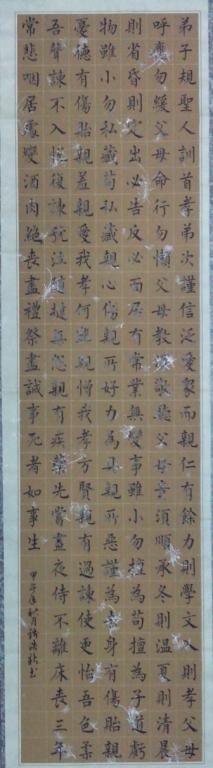 弟子規聖人訓首孝弟次謹信泛愛眾而親仁有餘力則學文入則孝父母
呼應勿緩父母命行勿懶父母教須敬聽父母責須順承冬則溫夏則清晨
則省昏則定出必告反必面居有常業無變事雖小勿擅為苟擅為子道虧
物雖小勿私藏苟私藏親心傷親所好力為具親所惡謹為去身有傷貽親
憂德有傷貽親羞親愛我孝何難親憎我孝方賢親有過諫使更怡吾色柔
吾聲諫不入悅復諫號泣隨撻無怨親有疾藥先嘗晝夜侍不離床喪三年
常悲咽居處變酒肉絕喪盡禮祭盡誠事死者如事生